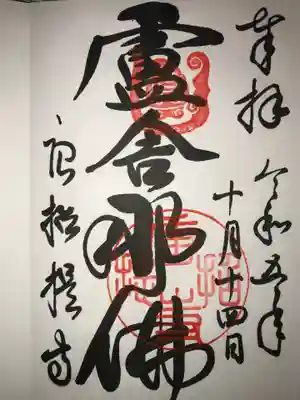 奉拝
令和五年
十月十四日
盧舎那佛
唐招提寺